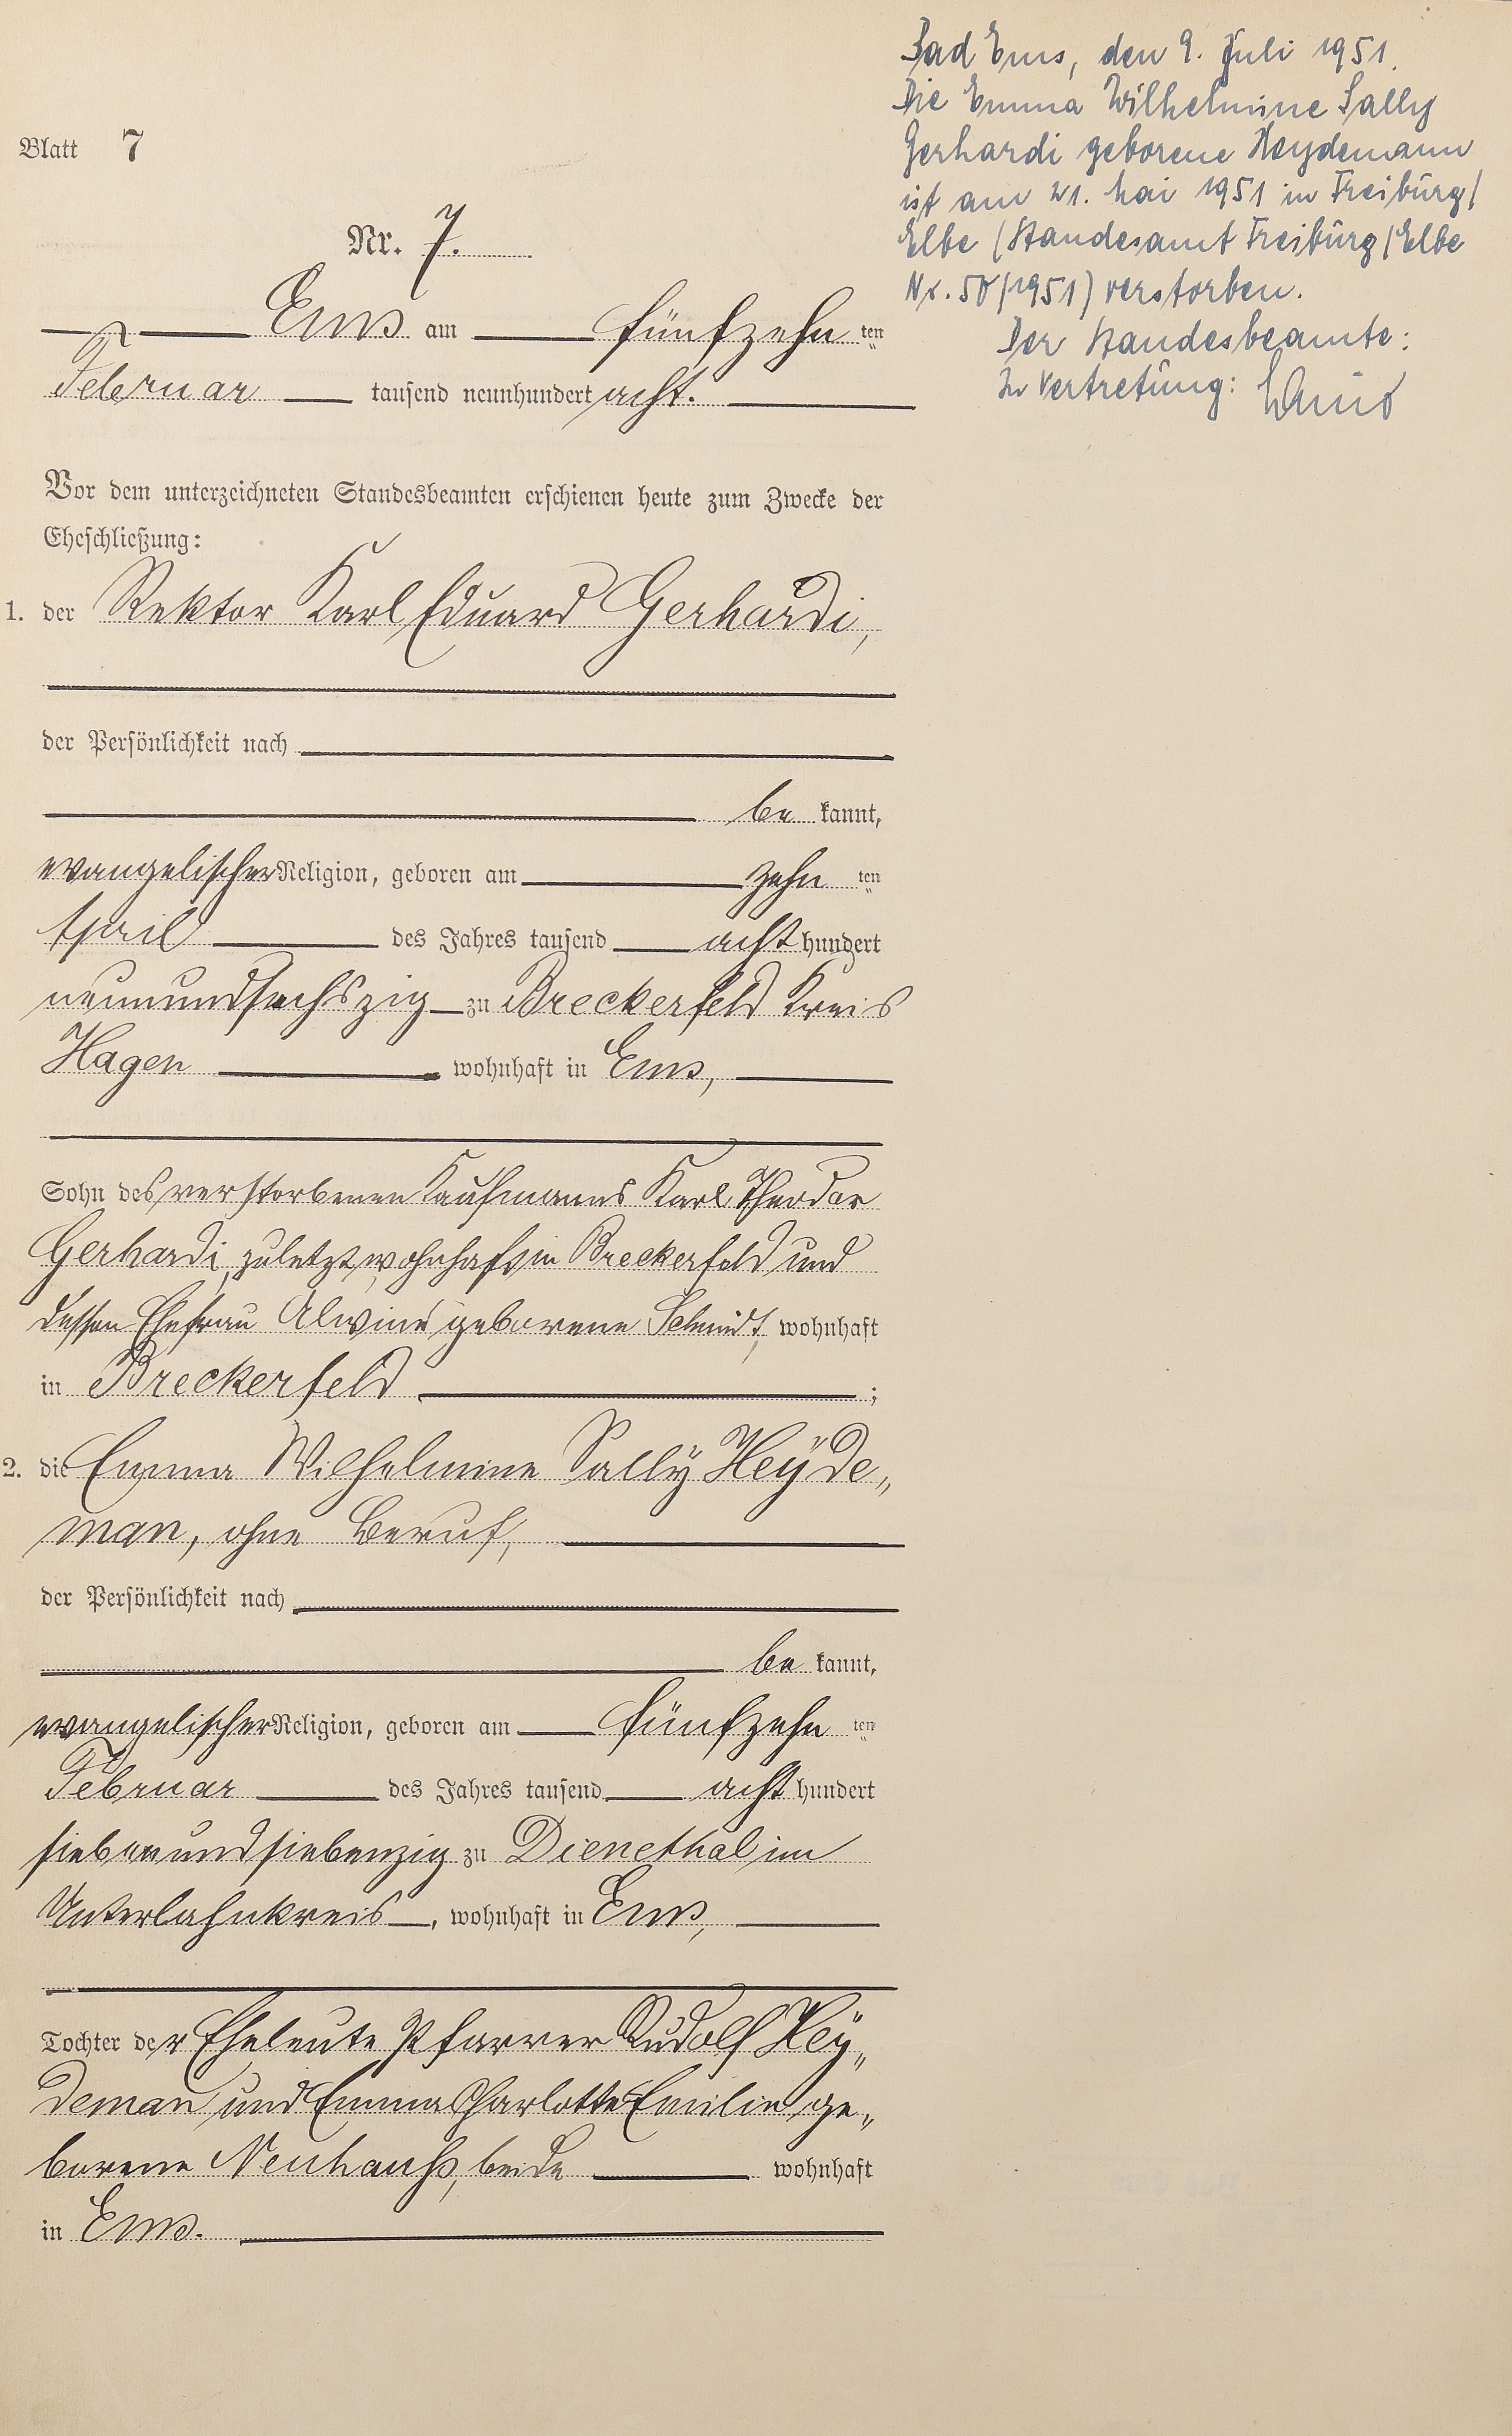 Blatt 7
Nr. 7.
Ems am fünfzehn ten
Februar tausend neunhundert acht.
Vor dem unterzeichneten Standesbeamten erschienen heute zum Zwecke der
Eheschließung:
1. der Rektor Karl Eduard Gerhardi,
der Persönlichkeit nach
be kannt,
evangelischer Religion, geboren am zehn ten
April des Jahres tausend acht hundert
neunundsechszig zu Breckerfeld Kreis
Hagen wohnhaft in Ems,
Sohn des verstorbenen Kaufmanns Karl Theodor
Gerhardi, zuletzt wohnhaft in Breckerfeld und
dessen Ehefrau Alwine geborene Schmidt, wohnhaft
in Breckerfeld ;
2. die Emma Wilhelmine Sally Heyde„
man, ohne Beruf,
der Persönlichkeit nach
be kannt,
evangelischer Religion, geboren am fünfzehn ten
Februar des Jahres tausend acht hundert
siebenundsiebenzig zu Dienethal im
Unterlahnkreis, wohnhaft in Ems,
Tochter der Eheleute Pfarrer Rudolf Hey„
deman und Emma Charlotte Emilie ge„
borene Neuhauß, beide wohnhaft
in Ems.
Bad Ems, den 9. Juli 1951.
Die Emma Wilhelmine Sally
Gerhardi geborene Heydemann
ist am 21. Mai 1951 in Freiburg/
Elbe (Standesamt Freiburg/Elbe
Nr. /1951) verstorben.
Der Standesbeamte:
In Vertretung: